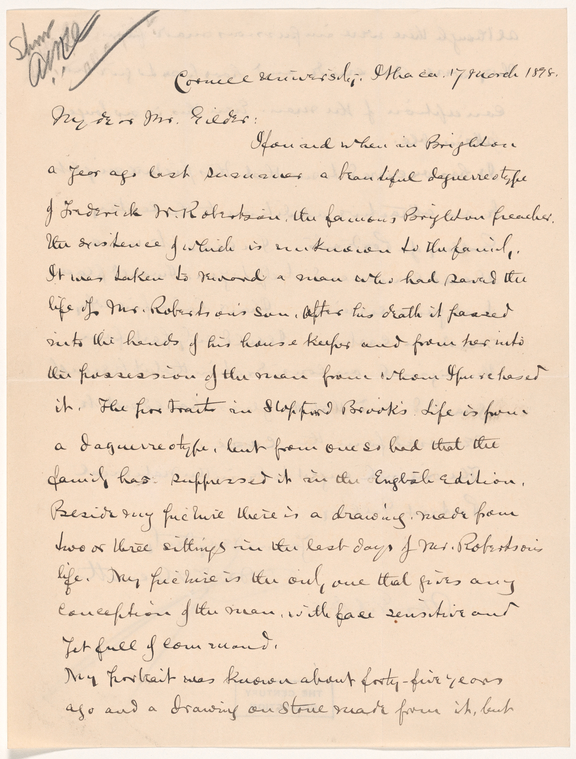 Show
Cornell University, Ithaca. 17 March 1898.
My dear Mr. Gilder:
I found when in Brighton
a year ago last summer a beautiful daguerreotype
of Frederick W. Robertson, the famous Brighton preacher,
the existence of which is unknown to the family.
It was taken to reward a man who had saved the
life of Mr. Robertson's son. After his death it passed
into the hands of his house keeper and from her into
the possession of the man from whom I purchased
it. The portrait in Stopford Brook's Life is from
a daguerreotype, but from one so bad that the
family has suppressed it in the English edition.
Beside my picture there is a drawing, made from
two or three sittings in the last days of Mr. Robertson's
life. My picture is the only one that gives any
conception of the man, with face sensitive and
yet full of command.
My portrait was known about forty-five years
ago and a drawing on stone made from it, but